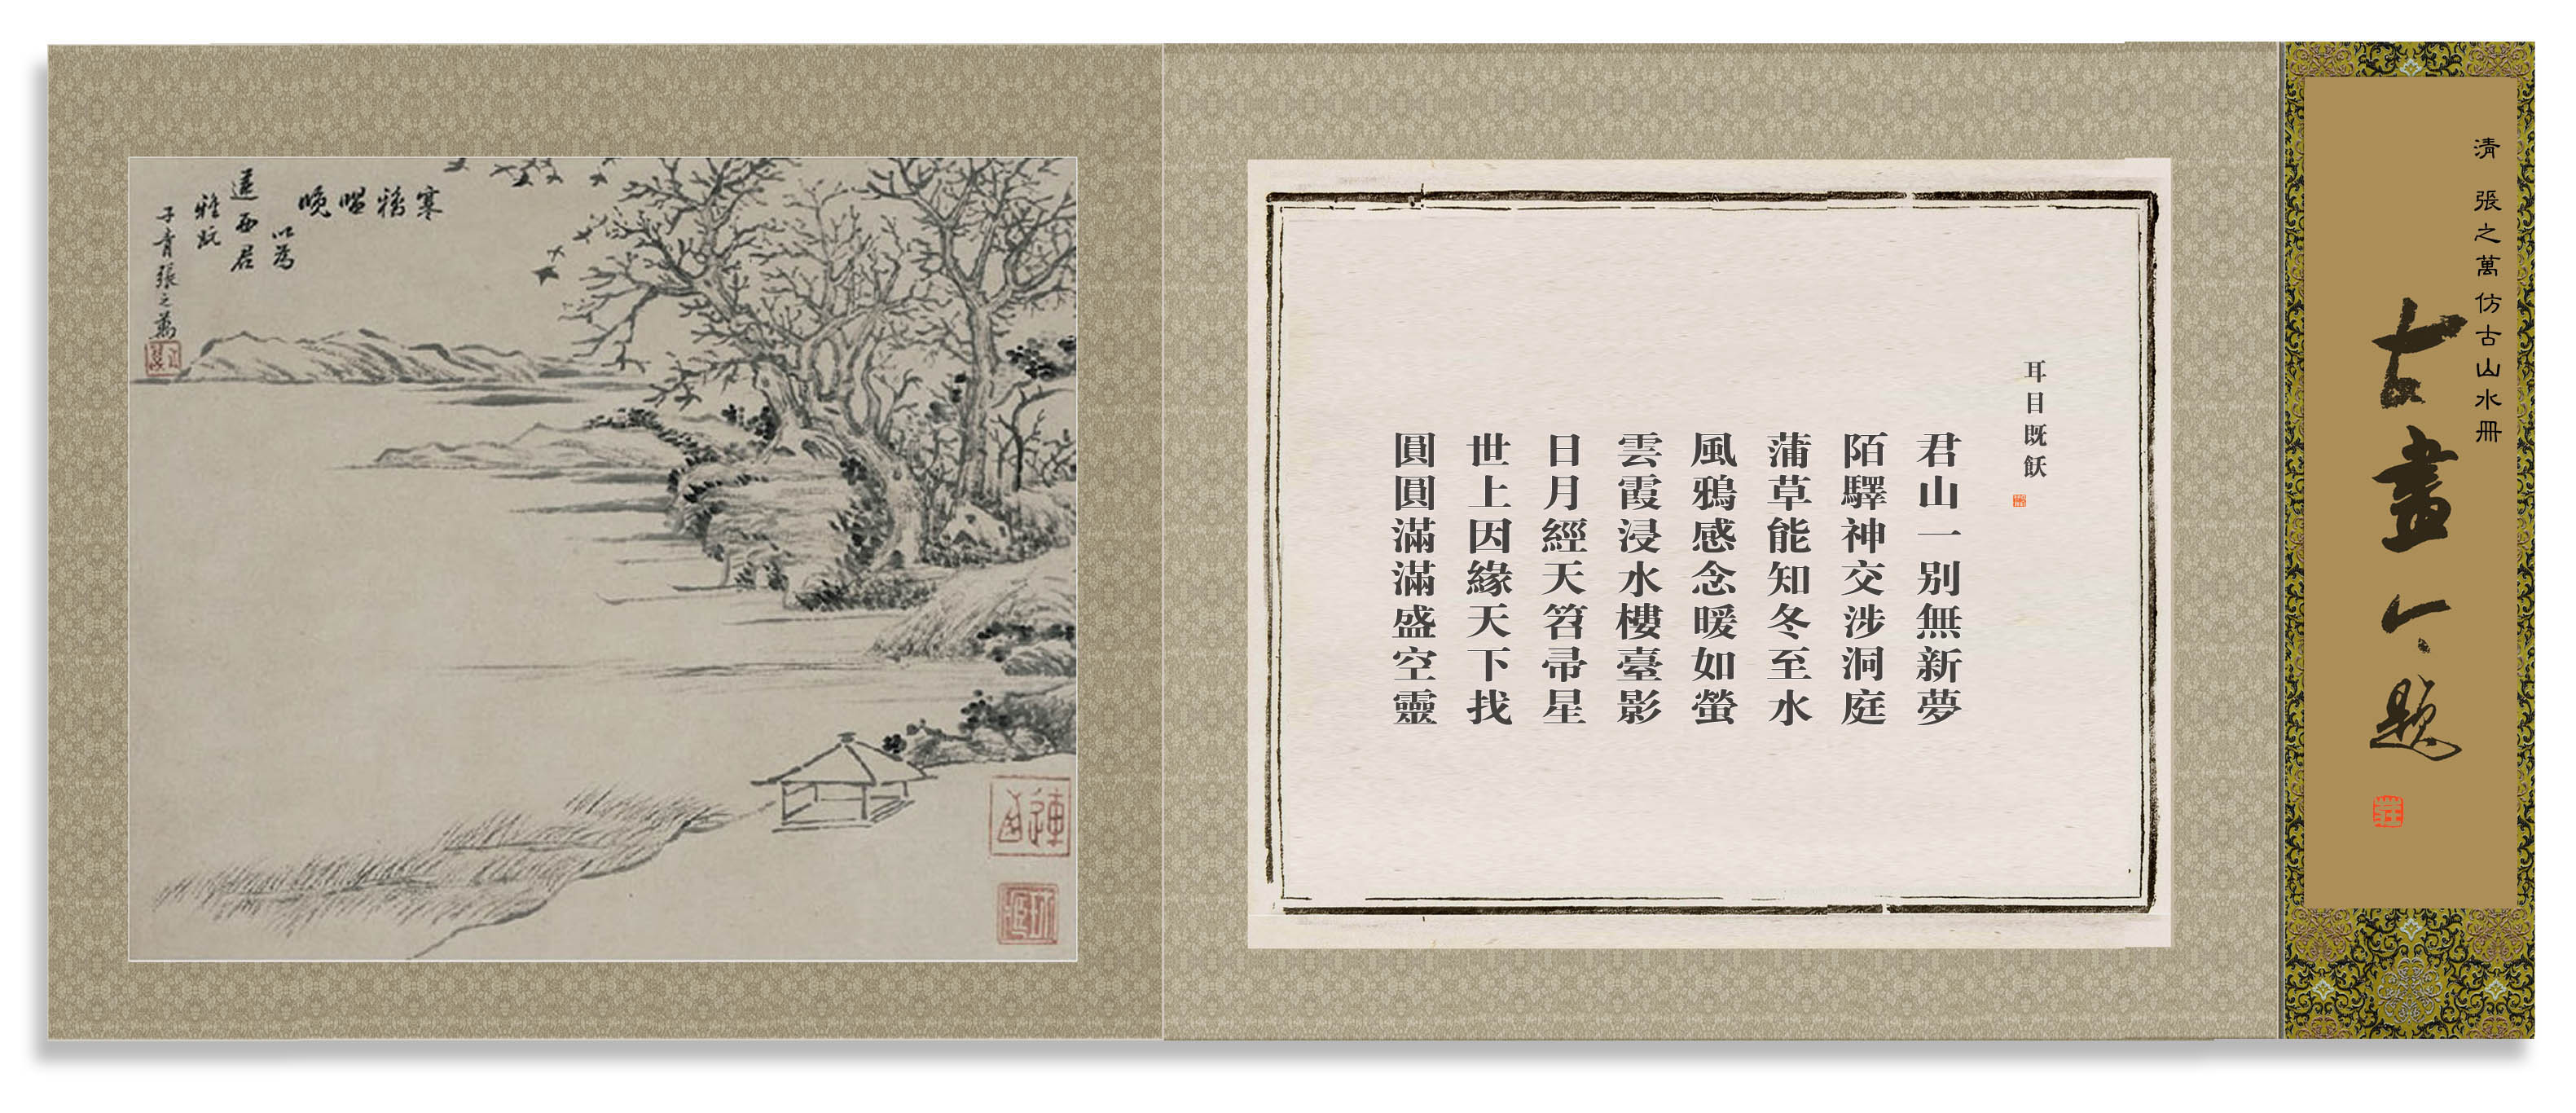 清 張之萬仿古山水冊
古畫今題
耳目既飫
君山一別無新夢
陌驛神交涉洞庭
蒲草能知冬至水
風鴉感念暖如螢
雲霞浸水樓臺影
日月經天笤帚星
世上因緣天下找
圓圓滿滿盛空靈
寒鴉噪晚
以為
蓮西居
雅玩
子青張之萬